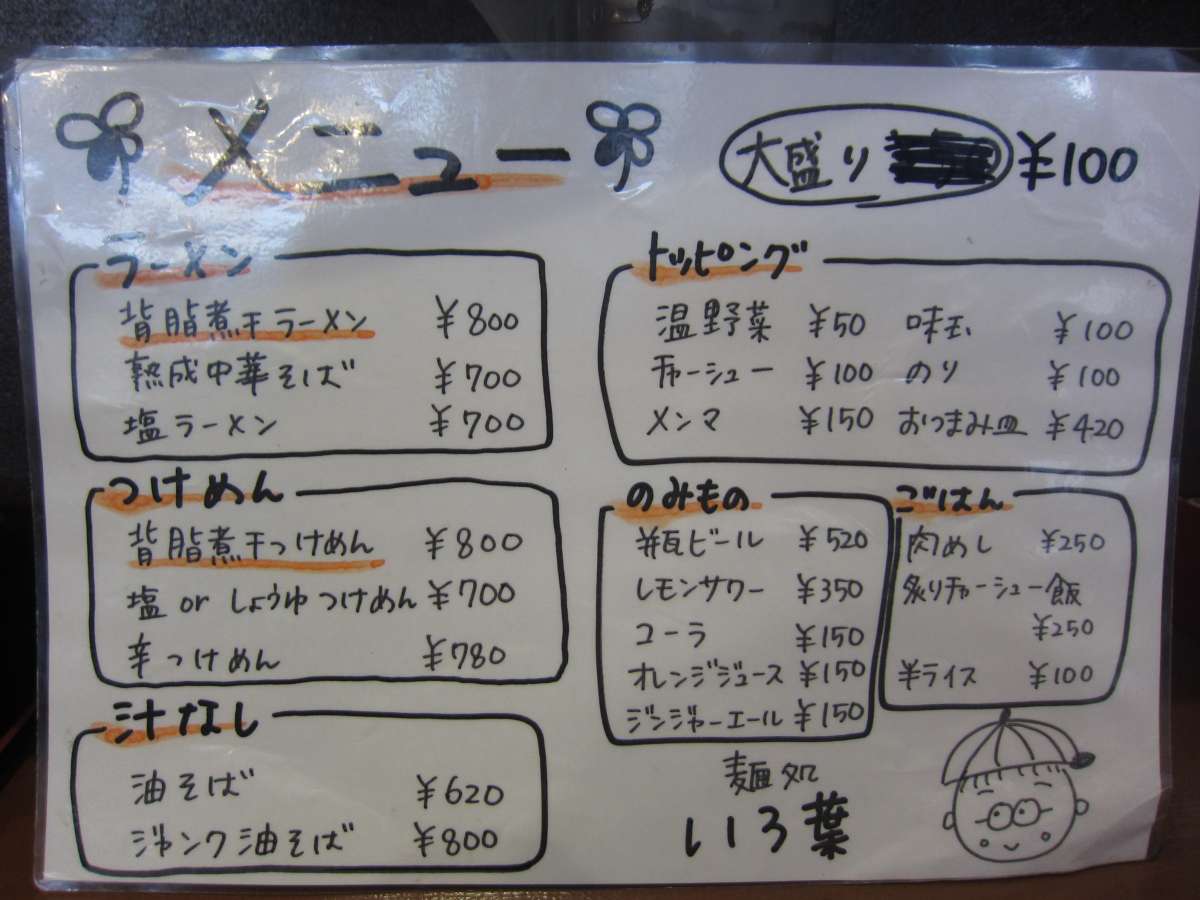 メニュー
大盛り ¥100
ラーメン
背脂煮干ラーメン ¥800
熟成中華そば ¥700
塩ラーメン ¥700
つけめん
背脂煮干つけめん ¥800
塩 or しょうゆつけめん ¥700
辛つけめん ¥780
汁なし
油そば ¥620
ジャンク油そば ¥800
トッピング
温野菜 ¥50 味玉 ¥100
チャーシュー ¥100 のり ¥100
メンマ ¥150 おつまみ皿 ¥420
のみもの
瓶ビール ¥520
レモンサワー ¥350
コーラ ¥150
オレンジジュース ¥150
ジンジャーエール ¥150
ごはん
肉めし ¥250
炙りチャーシュー飯
¥250
半ライス ¥100
麺処
いろ葉